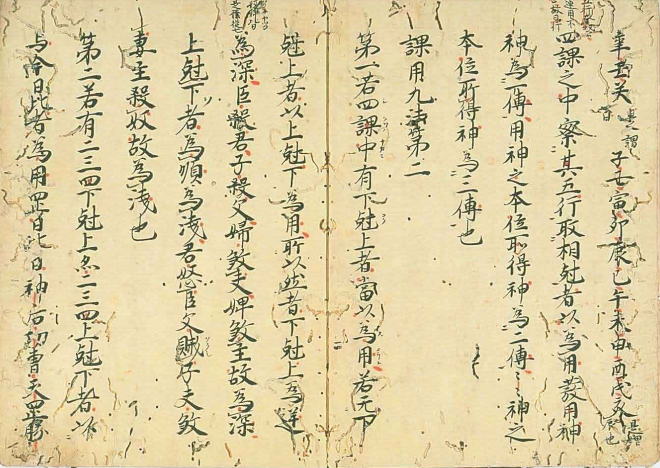 子丑寅卯辰巳午未申酉戌亥
四課之中察其五行取相尅者以為用發用神
神為一傳用神之本位所得神為二傳〻神之
本位所得神為三傳也
課用九法第二
第一若四課中有下尅上者當以為用若无下
尅上者以上尅下為用所以然者下尅上為逆
為深臣煞君子殺父婦煞夫婢煞主故為深
上尅下者為順為淺君 臣父賊子夫煞
妻主殺奴故為淺也
第二若有二三四下尅上及二三四上尅下者以
与今日比者為用四 比日神